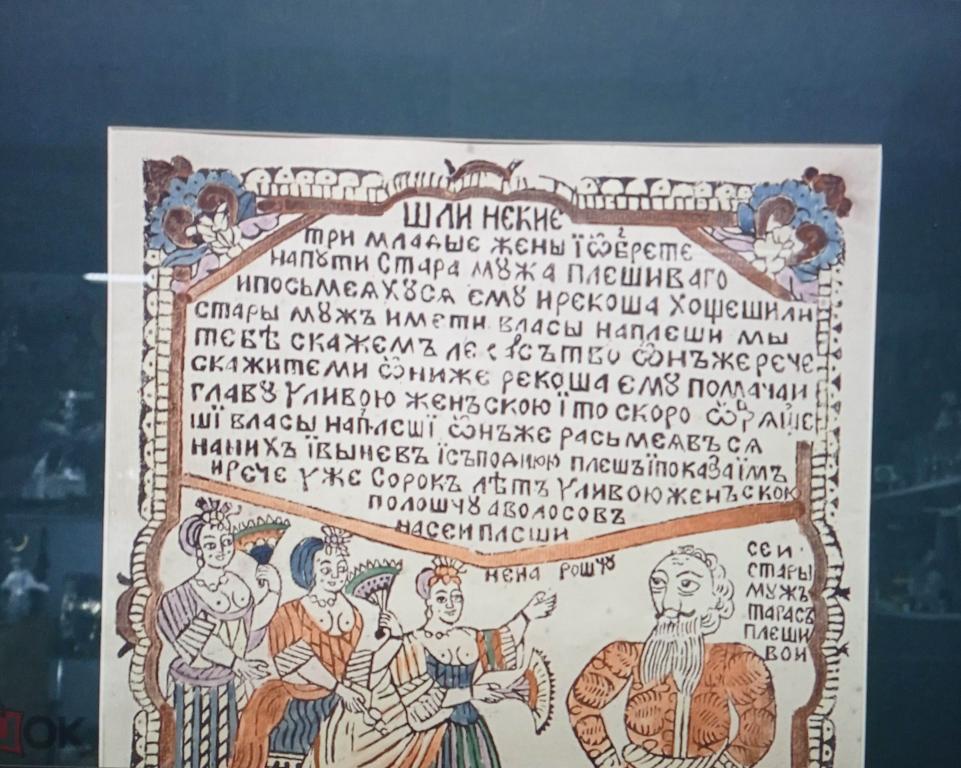 ШЛИ НЕКИЕ
ТРИ МЛАДЫЕ ЖЕНЫ ЇѾБРЕТЕ
НАПꙋТИ СТАРА МꙋЖА ПЛЕШИВАГО
ИПОСЬМЕѦХꙋСЯ ЕМꙋ ИРЕКОША ХОЩЕШИЛИ
СТАРЫ МꙋЖЪ ИМЕТИ ВЛАСЫ НАПЛЕШИ МЫ
ТЕБѢ СКАЖЕМЪ ѾНЪЖЕ РЕЧЕ
СКАЖИТЕМИ ѾНИЖЕ РЕКОША ЕМꙋ ПОМАЧАИ
ГЛАВꙋ УЛИВОЮ ЖЕНЪСКОЮ ЇТО СКОРО
ШЇ ВЛАСЫ НАПЛЕШЇ ѾНЪЖЕ РАСЬМЕЯВЪСЯ
НАНИХЪ ЇВЫНЕВЪ ЇСЪПОДНЮЮ ПЛЕШЪ ЇПОКАЗА ЇМЪ
ИРЕЧЕ УЖЕ СОРОКЪ ЛѢТЪ УЛИВОЮЖЕНЪСКОЮ
ПОЛОЩЧꙋ АВОЛОСОВЪ
НАСЕИПЛЕШИ
НЕНА РОЩЧꙋ
СЕИ
СТАРЫ
МꙋЖЪ
ТАРАСЪ
ПЛЕШИ
ВОИ
ОК